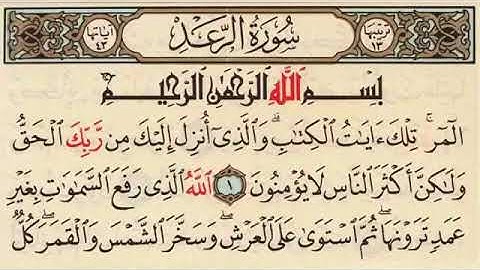 ترتيبها ١٣ سُورَةُ الرَّعْدِ آياتها ٤٣
بِسْمِ ٱللَّهِ ٱلرَّحْمَٰنِ ٱلرَّحِيمِ
الٓمٓر ۚ تِلْكَ ءَايَٰتُ ٱلْكِتَٰبِ ۗ وَٱلَّذِىٓ أُنزِلَ إِلَيْكَ مِن رَّبِّكَ ٱلْحَقُّ
وَلَٰكِنَّ أَكْثَرَ ٱلنَّاسِ لَا يُؤْمِنُونَ ١ ٱللَّهُ ٱلَّذِى رَفَعَ ٱلسَّمَٰوَٰتِ بِغَيْرِ
عَمَدٍ تَرَوْنَهَا ۖ ثُمَّ ٱسْتَوَىٰ عَلَى ٱلْعَرْشِ ۖ وَسَخَّرَ ٱلشَّمْسَ وَٱلْقَمَرَ ۖ كُلٌّ